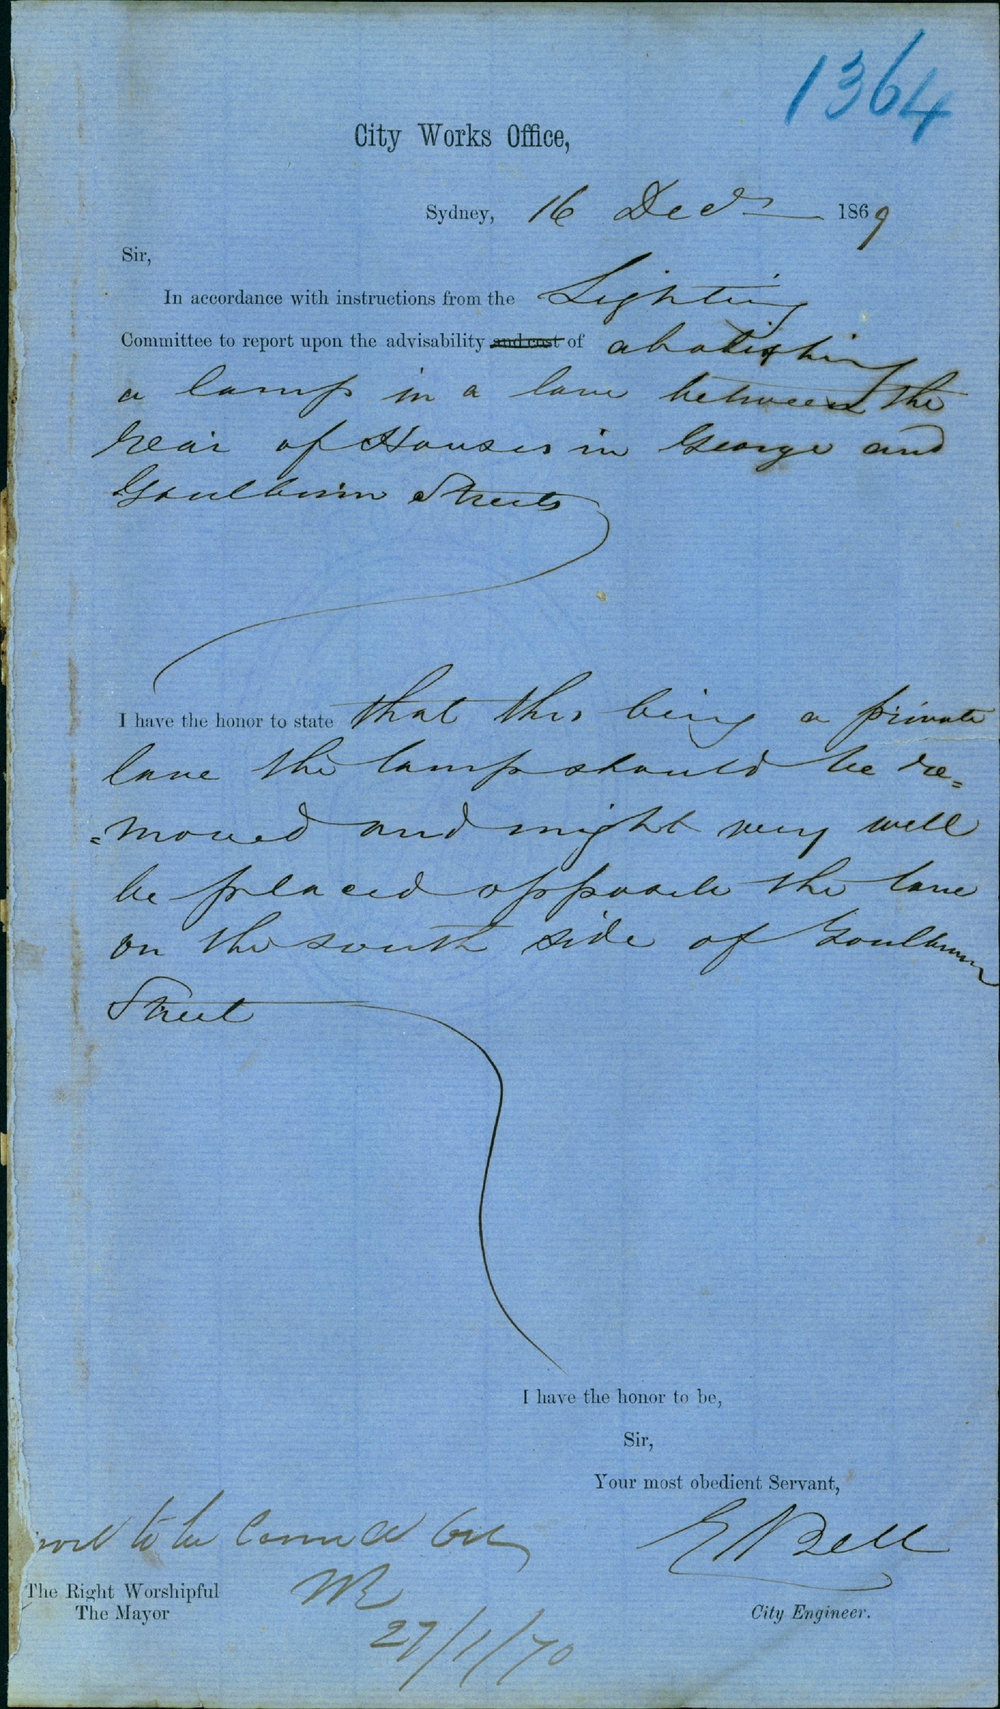 1364
City Works Office,
Sydney, 16 Decr 1869
Sir,
In accordance with instructions from the Lighting
Committee to report upon the advisability and cost of abolishing
a lamp in a lane between the
rear of Houses in George and
Goulburn Streets
I have the honor to state that this being a private
lane the lamp should be re=
=moved and might very well
be placed opposite the lane
on the south side of Goulburn
Street
I have the honor to be,
Sir,
Your most obedient Servant,
E Bell
City Engineer.
to be carried out
The Right Worshipful
The Mayor
27/1/70